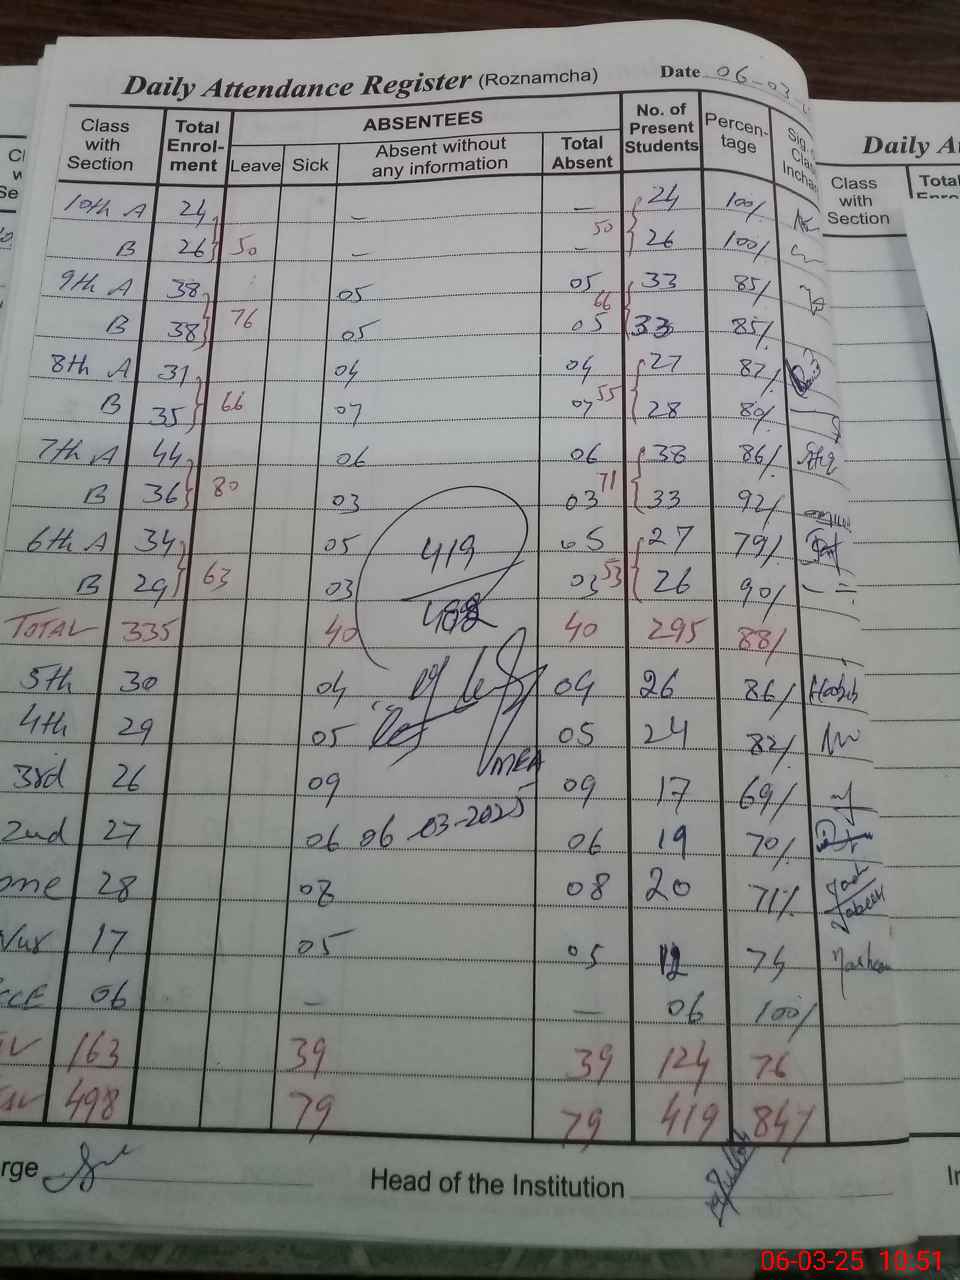 Daily Attendance Register (Roznamcha) Date 06-03-
Class with Section Total Enrol-ment ABSENTEES No. of Present Students Percen-tage Sig. Clas Incha
Leave Sick Absent without any information Total Absent
10th A 24 – – 24 100%
B 26 50 – – 50 26 100%
9th A 38 05 05 33 85%
B 38 76 05 05 66 33 85%
8th A 31 04 04 27 87%
B 35 66 07 07 55 28 80%
7th A 44 06 06 38 86%
B 36 80 03 03 71 33 92%
6th A 34 05 05 27 79%
B 29 63 03 03 53 26 90%
419
498
TOTAL 335 40 40 295 88%
5th 30 04 04 26 86% Habib
4th 29 05 05 24 82%
3rd 26 09 09 17 69%
MEA
2nd 27 06 06 19 70%
06-03-2025
one 28 08 08 20 71%
Nur 17 05 05 12 75
ECCE 06 – – 06 100%
163 39 39 124 76
498 79 79 419 84%
rge Head of the Institution
Daily A
Class with Section Total Enrol
In
06-03-25 10:51